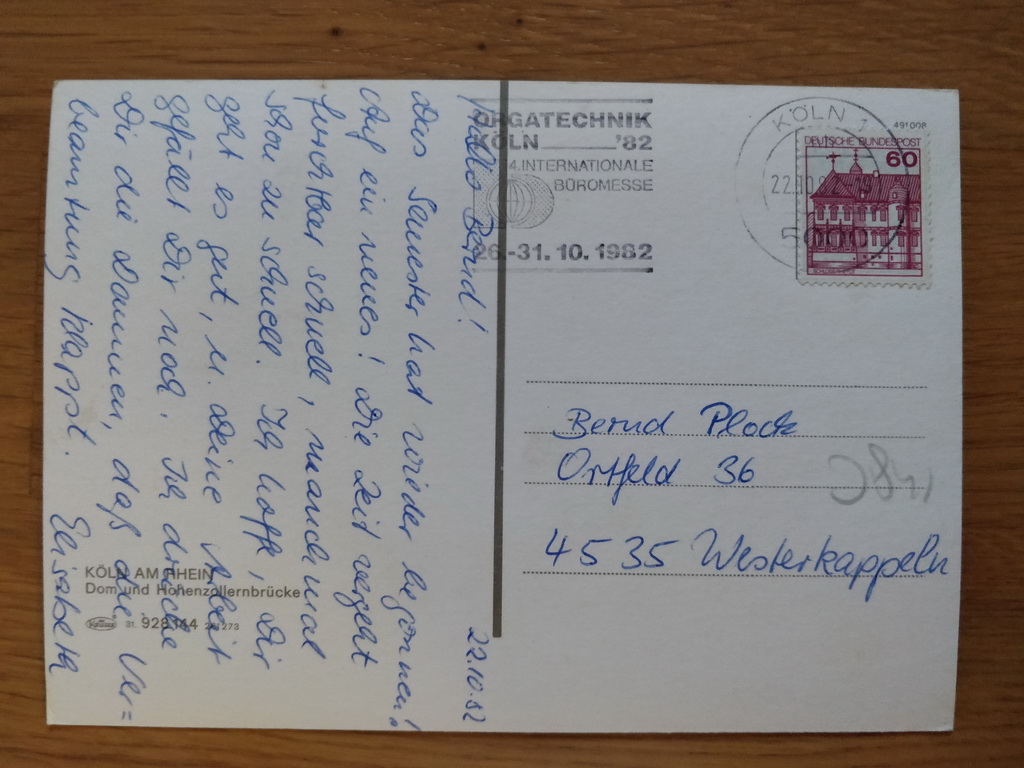 22.10.82
Hallo Bernd!
Das Semester hat wieder begonnen!
Auf ein neues! Die Zeit vergeht
furchtbar schnell, manchmal
schon zu schnell. Ich hoffe, Dir
geht es gut, u. Deine Arbeit
gefällt Dir noch. Ich drücke
Dir die Daumen, daß die Ver=
beamtung klappt. Elisabeth
KÖLN AM RHEIN
Dom und Hohenzollernbrücke
31. 928144
ORGATECHNIK
KÖLN '82
4.INTERNATIONALE
BÜROMESSE
26.-31. 10. 1982
KÖLN 1
491008
22.10.
5000
DEUTSCHE BUNDESPOST
60
Bernd Plock
Ortfeld 36
4535 Westerkappeln